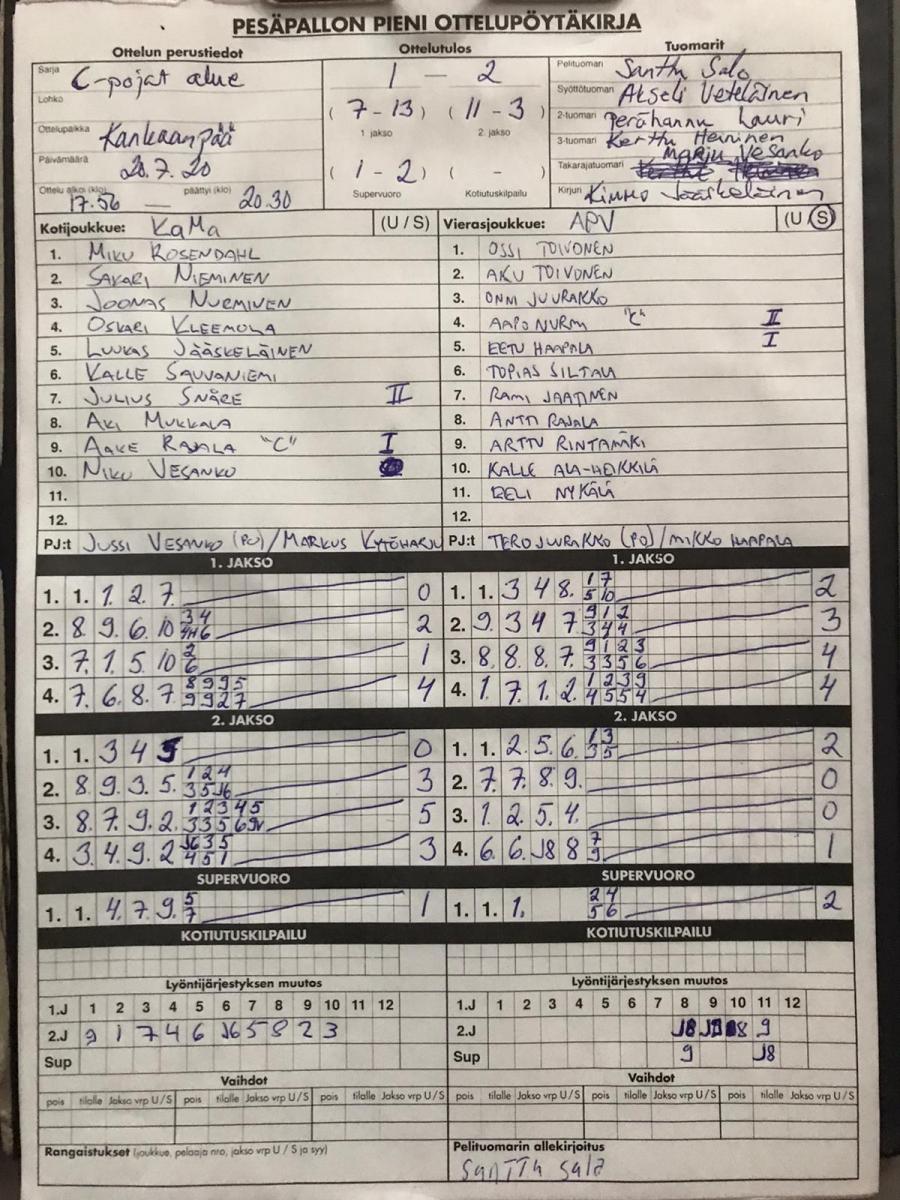 PESÄPALLON PIENI OTTELUPÖYTÄKIRJA
Ottelun perustiedot
Sarja C-pojat alue
Lohko
Ottelupaikka Kankaanpää
Päivämäärä 20.7.20
Ottelu alkoi (klo) 17.56 — päättyi (klo) 20.30
Ottelutulos
1 — 2
(7-13) (11-3)
1 jakso 2. jakso
(1-2) ( - )
Supervuoro Kotiutuskilpailu
Tuomarit
Pelituomari Santtu Salo
Syöttötuomari Akseli Veteläinen
2-tuomari Perähannu Lauri
3-tuomari Kerttu Heininen
Marju Vesanko
Takarajatuomari
Kirjuri Kimmo Jääskeläinen
Kotijoukkue: KaMa (U / S)
1. MIKU ROSENDAHL
2. SAKARI NIEMINEN
3. JOONAS NURMINEN
4. OSKARI KLEEMOLA
5. LUUKAS JÄÄSKELÄINEN
6. KALLE SAUVANIEMI
7. JULIUS SNÄRE II
8. AKI MUKKALA
9. AAKE RAJALA "C" I
10. NIKO VESANKO
11.
12.
PJ:t JUSSI VESANKO (PO) / MARKUS KYTÖHARJU
Vierasjoukkue: APV (U / S)
1. OSSI TOIVONEN
2. AKU TOIVONEN
3. ONNI JUURAKKO
4. AAPO NURMI "C" II
5. EETU HAAPALA I
6. TOPIAS SILTALA
7. RAMI JAATINEN
8. ANTTI RAJALA
9. ARTTU RINTAMÄKI
10. KALLE ALA-HEIKKILÄ
11. EELI NYKÄLÄ
12.
PJ:t TERO JUURAKKO (PO) / MIKKO HAAPALA
1. JAKSO
1. 1. 1. 2. 7. 0
2. 8 9. 6. 10 2
3. 7. 1. 5. 10 2 6 1
4. 7. 6. 8. 7 8995 9927 4
2. JAKSO
1. 1. 3 4 0
2. 8 9. 3. 5. 124 35J6 3
3. 8. 7. 9. 2. 12345 5
4. 3. 4. 9. 2 J635 451 3
SUPERVUORO
1. 1. 4. 7. 9. 5 7 1
KOTIUTUSKILPAILU
1. JAKSO
1. 1. 3 4 8. 17 5 10 2
2. 9. 3 4 7 912 344 3
3. 8. 8. 8 7. 9123 3356 4
4. 1. 7. 1. 2. 1239 4554 4
2. JAKSO
1. 1. 2. 5. 6. 13 35 2
2. 7. 7. 8 9. 0
3. 1. 2 5. 4. 0
4. 6. 6. J8 8 7 9 1
SUPERVUORO
1. 1. 1. 24 56 2
KOTIUTUSKILPAILU
Lyöntijärjestyksen muutos
1.J 1 2 3 4 5 6 7 8 9 10 11 12
2.J 9 1 7 4 6 J6 5 8 2 3
Sup
Vaihdot
pois tilalle Jakso vrp U / S pois tilalle Jakso vrp U / S pois tilalle Jakso vrp U / S
Rangaistukset (joukkue, pelaaja nro, jakso vrp U / S ja syy)
Lyöntijärjestyksen muutos
1.J 1 2 3 4 5 6 7 8 9 10 11 12
2.J J8 8 9
Sup 9 J8
Vaihdot
pois tilalle Jakso vrp U / S pois tilalle Jakso vrp U / S pois tilalle Jakso vrp U / S
Pelituomarin allekirjoitus
Santtu Salo